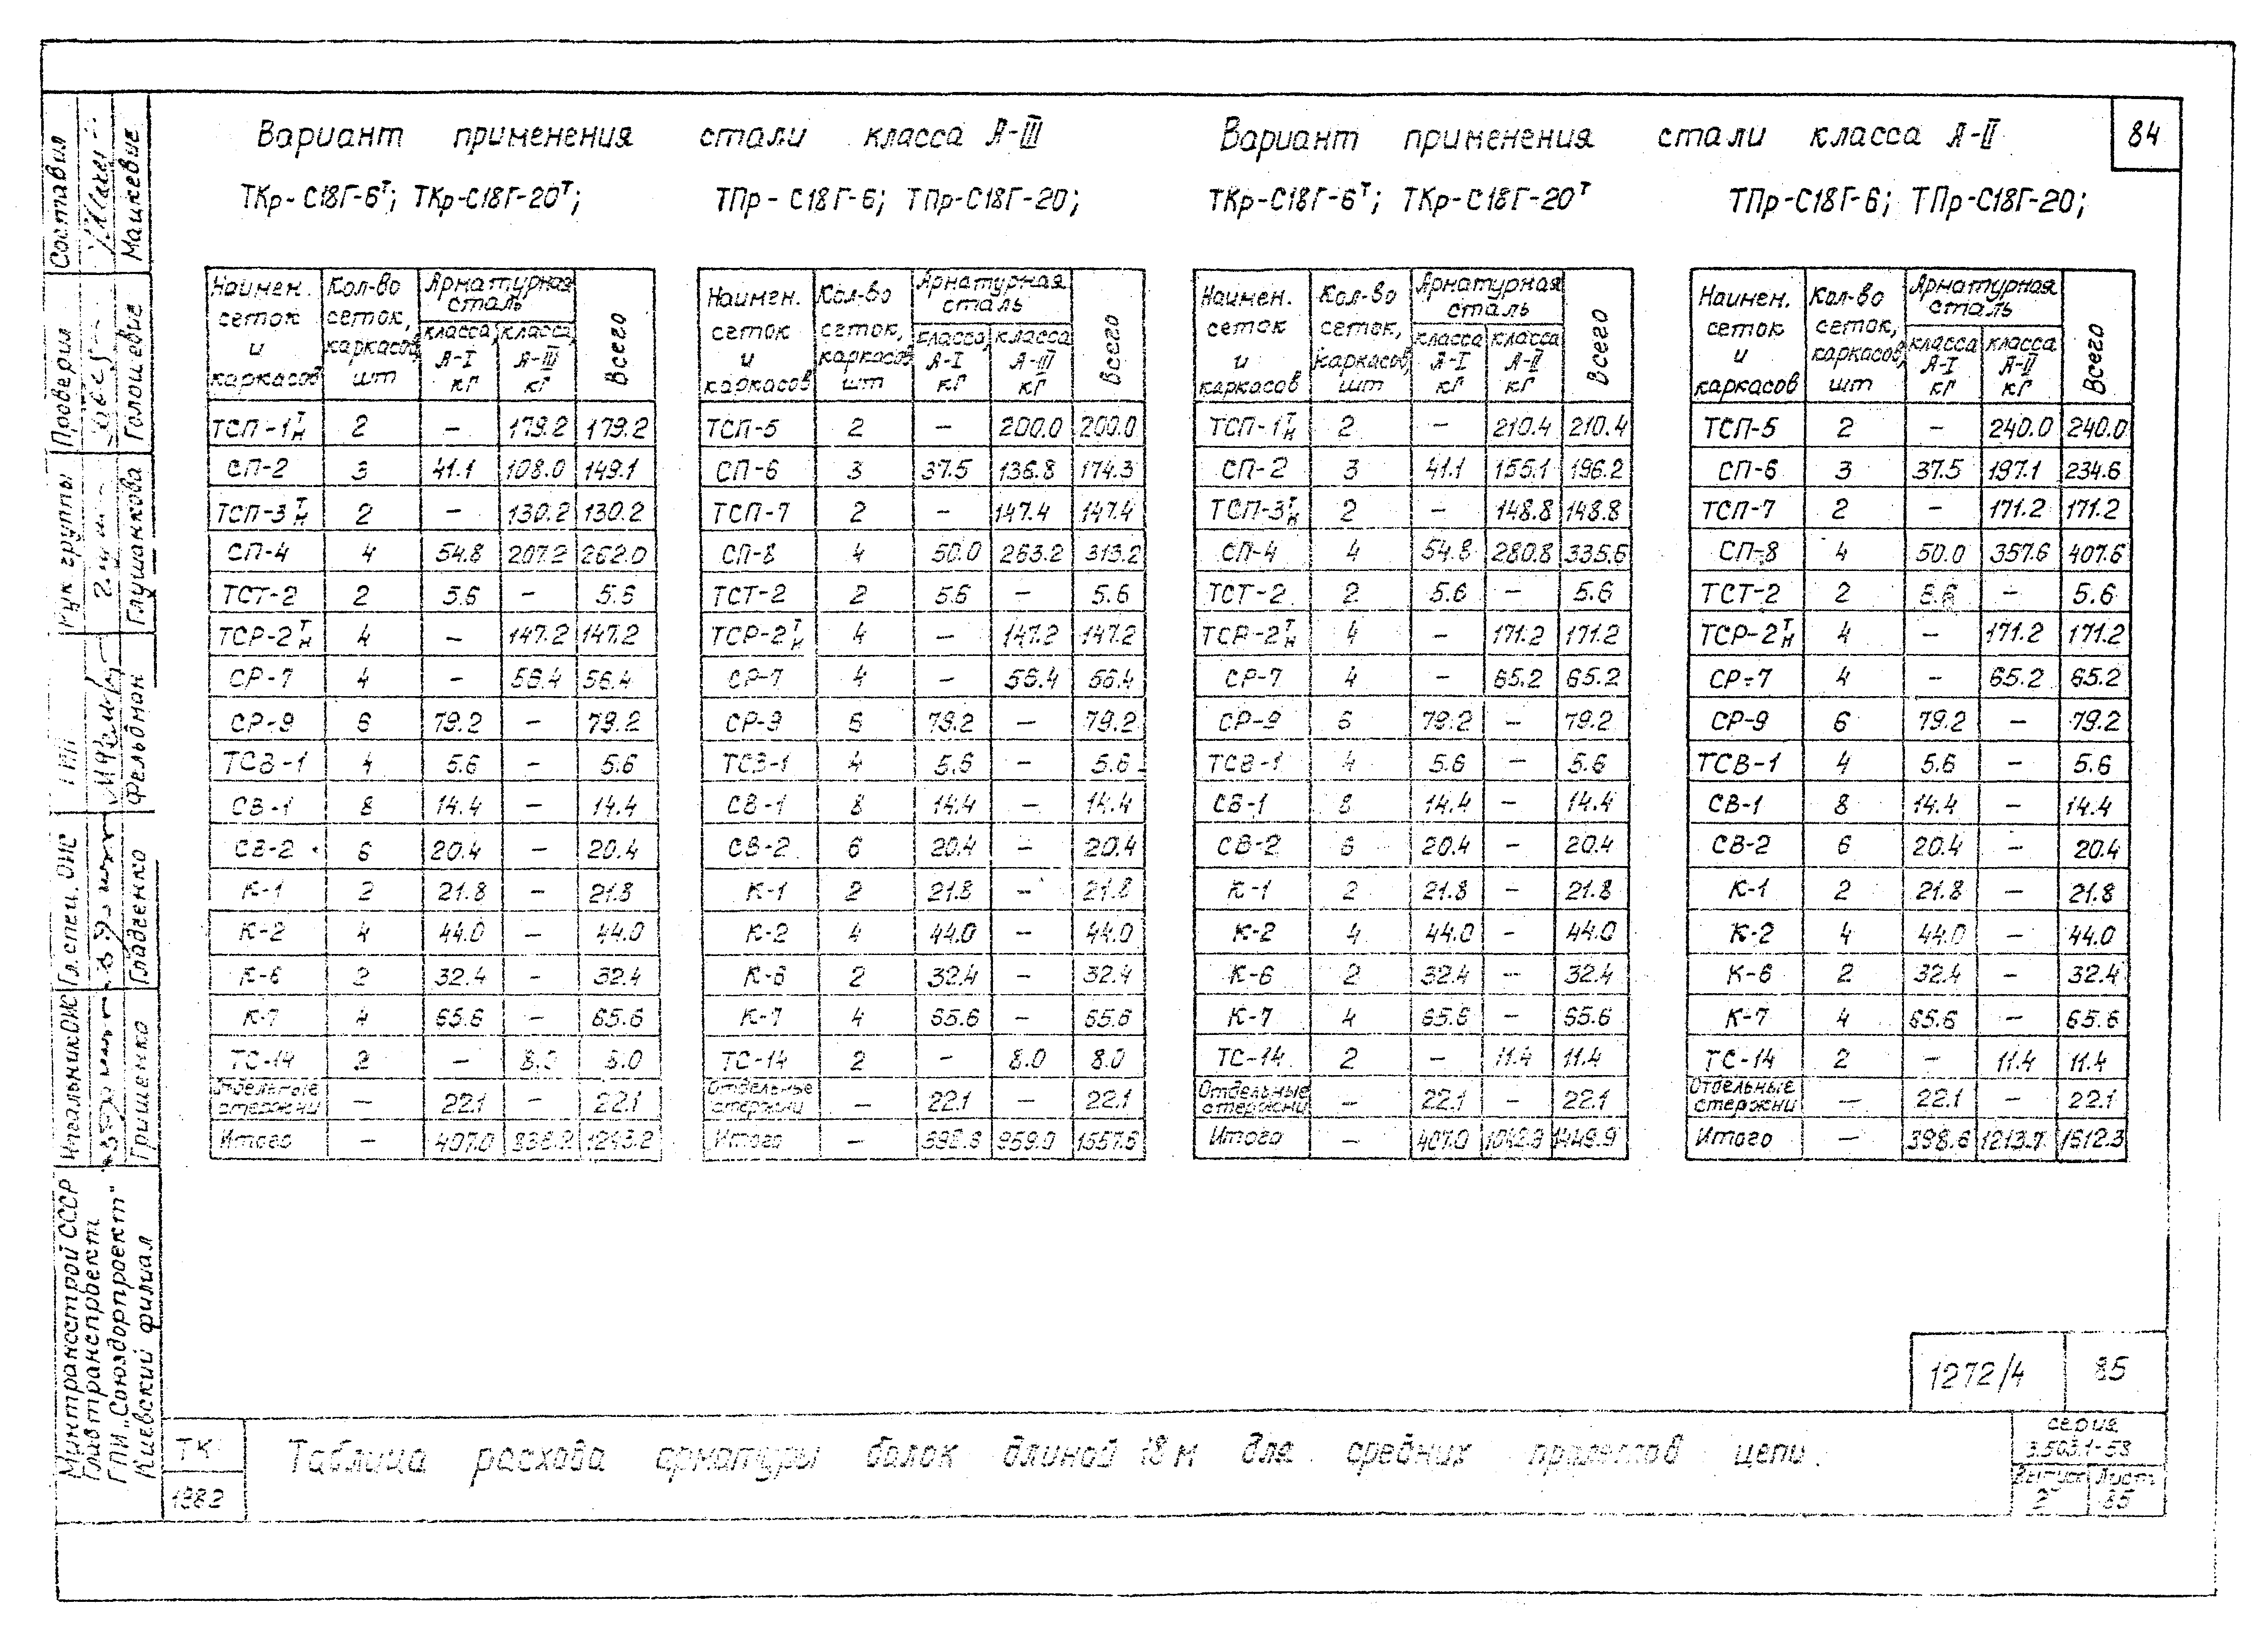 84
Вариант применения стали класса А-III
ТКр-С18Г-6Т; ТКр-С18Г-20Т; ТПр-С18Г-6; ТПр-С18Г-20;
Наимен. сеток и каркасов | Кол-во сеток, каркасов, шт | Арматурная сталь класса А-I кГ | класса А-III кГ | Всего
ТСП-1Тн 2 – 179.2 179.2
СП-2 3 41.1 108.0 149.1
ТСП-3Тн 2 – 130.2 130.2
СП-4 4 54.8 207.2 262.0
ТСТ-2 2 5.6 – 5.6
ТСР-2Тн 4 – 147.2 147.2
СР-7 4 – 56.4 56.4
СР-9 6 79.2 – 79.2
ТСВ-1 4 5.6 – 5.6
СВ-1 8 14.4 – 14.4
СВ-2 6 20.4 – 20.4
К-1 2 21.8 – 21.8
К-2 4 44.0 – 44.0
К-6 2 32.4 – 32.4
К-7 4 65.6 – 65.6
ТС-14 2 – 8.0 8.0
Отдельные стержни – 22.1 – 22.1
Итого – 407.0 836.2 1243.2
Наимен. сеток и каркасов | Кол-во сеток, каркасов, шт | Арматурная сталь класса А-I кГ | класса А-III кГ | Всего
ТСП-5 2 – 200.0 200.0
СП-6 3 37.5 136.8 174.3
ТСП-7 2 – 147.4 147.4
СП-8 4 50.0 263.2 313.2
ТСТ-2 2 5.6 – 5.6
ТСР-2Тн 4 – 147.2 147.2
СР-7 4 – 56.4 56.4
СР-9 6 79.2 – 79.2
ТСВ-1 4 5.6 – 5.6
СВ-1 8 14.4 – 14.4
СВ-2 6 20.4 – 20.4
К-1 2 21.8 – 21.8
К-2 4 44.0 – 44.0
К-6 2 32.4 – 32.4
К-7 4 65.6 – 65.6
ТС-14 2 – 8.0 8.0
Отдельные стержни – 22.1 – 22.1
Итого – 398.6 959.0 1357.6
Вариант применения стали класса А-II
ТКр-С18Г-6Т; ТКр-С18Г-20Т ТПр-С18Г-6; ТПр-С18Г-20;
Наимен. сеток и каркасов | Кол-во сеток, каркасов, шт | Арматурная сталь класса А-I кГ | класса А-II кГ | Всего
ТСП-1Тн 2 – 210.4 210.4
СП-2 3 41.1 155.1 196.2
ТСП-3Тн 2 – 148.8 148.8
СП-4 4 54.8 280.8 335.6
ТСТ-2 2 5.6 – 5.6
ТСР-2Тн 4 – 171.2 171.2
СР-7 4 – 65.2 65.2
СР-9 6 79.2 – 79.2
ТСВ-1 4 5.6 – 5.6
СВ-1 8 14.4 – 14.4
СВ-2 6 20.4 – 20.4
К-1 2 21.8 – 21.8
К-2 4 44.0 – 44.0
К-6 2 32.4 – 32.4
К-7 4 65.6 – 65.6
ТС-14 2 – 11.4 11.4
Отдельные стержни – 22.1 – 22.1
Итого – 407.0 1042.9 1449.9
Наимен. сеток и каркасов | Кол-во сеток, каркасов, шт | Арматурная сталь класса А-I кГ | класса А-II кГ | Всего
ТСП-5 2 – 240.0 240.0
СП-6 3 37.5 197.1 234.6
ТСП-7 2 – 171.2 171.2
СП-8 4 50.0 357.6 407.6
ТСТ-2 2 5.6 – 5.6
ТСР-2Тн 4 – 171.2 171.2
СР-7 4 – 65.2 65.2
СР-9 6 79.2 – 79.2
ТСВ-1 4 5.6 – 5.6
СВ-1 8 14.4 – 14.4
СВ-2 6 20.4 – 20.4
К-1 2 21.8 – 21.8
К-2 4 44.0 – 44.0
К-6 2 32.4 – 32.4
К-7 4 65.6 – 65.6
ТС-14 2 – 11.4 11.4
Отдельные стержни – 22.1 – 22.1
Итого – 398.6 1213.7 1612.3
1272/4 85
ТК
1982
Таблица расхода арматуры балок длиной 18м для средних пролетов цепи.
серия
3.503.1-58
Выпуск Лист
2 85
Минтрансстрой СССР
Главтранспроект
ГПИ „Союздорпроект"
Киевский филиал
Начальник ОИС Гриценко
Гл. спец. ОИС Гладенко
ГИП Фельдман
Рук группы Глушанкова
Проверил Голошевич
Составил Мацкевич